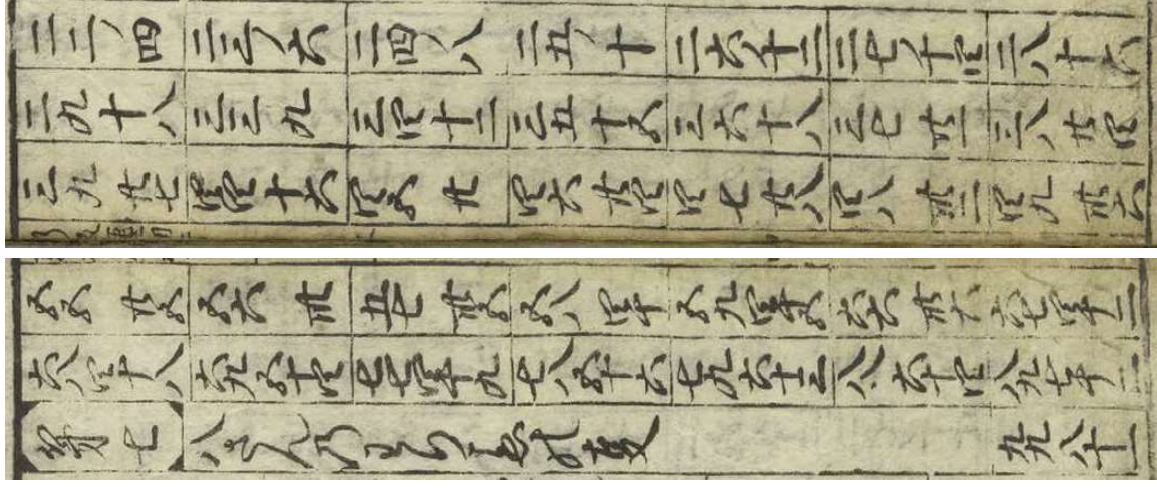 二二ノ四 二三ノ六 二四ノ八 二五ノ十 二六十二 二七十四 二八十六
二九十八 三三九 三四十二 三五十五 三六十八 三七廿一 三八廿四
三九廿七 四四十六 四五廿 四六廿四 四七廿八 四八卅二 四九卅六
五五廿五 五六卅 五七卅五 五八四十 五九四十五 六六卅六 六七四十二
六八四十八 六九五十四 七七四十九 七八五十六 七九六十三 八八六十四 八九七十二
第七 八さん 九九八十一